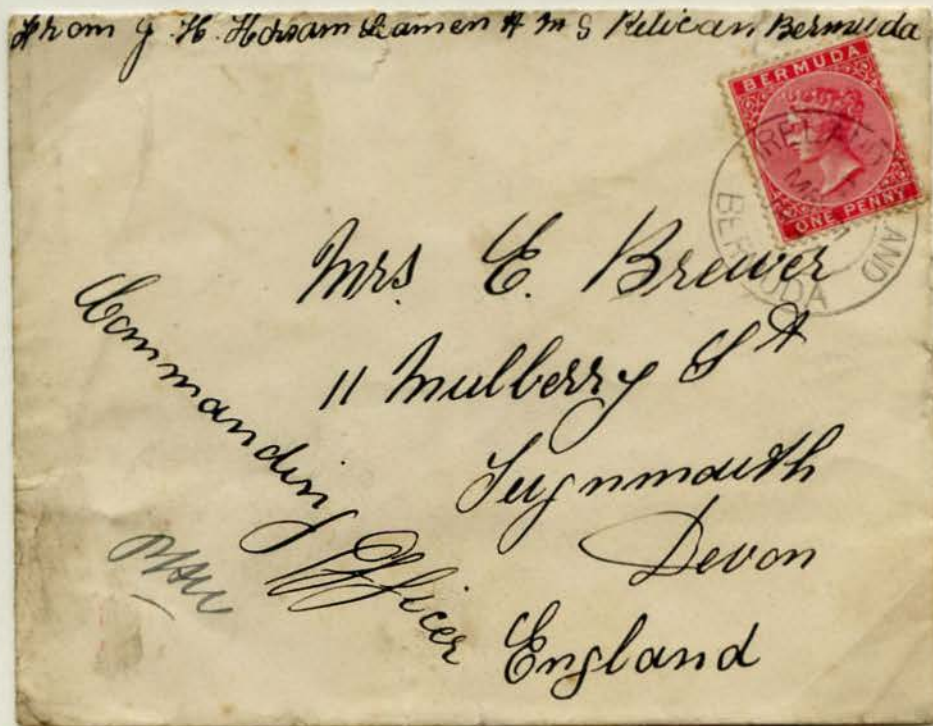 From J. H. Horsam Seamen H M S Pelican Bermuda
BERMUDA
ONE PENNY
IRELAND ISLAND
BERMUDA
Mrs. E. Brewer
11 Mulberry St
Teignmouth
Devon
England
Commanding Officer